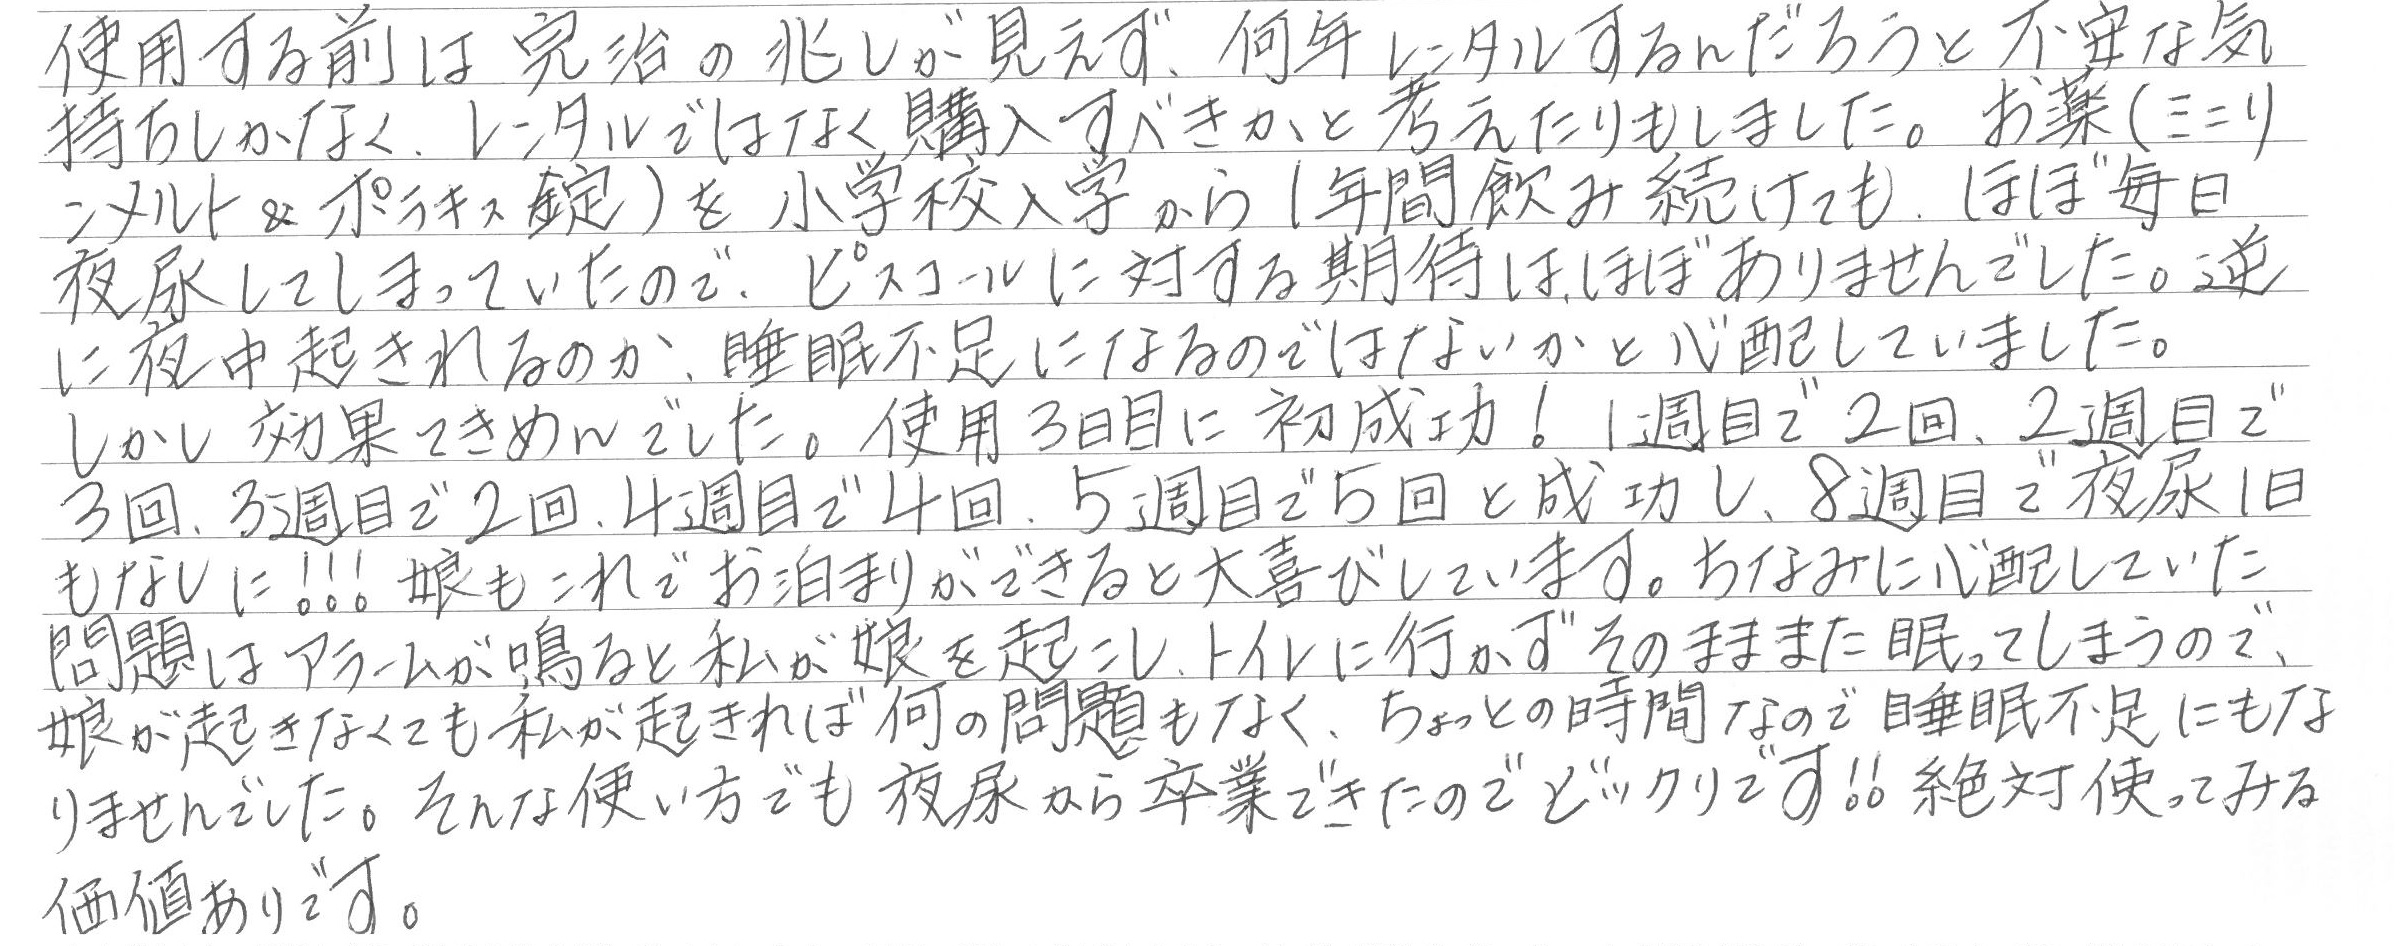 使用する前は完治の兆しが見えず、何年レンタルするんだろうと不安な気
持ちしかなく、レンタルではなく購入すべきかと考えたりもしました。お薬(ミニリ
ンメルト&ポラキス錠)を小学校入学から1年間飲み続けても、ほぼ毎日
夜尿してしまっていたので、ピスコールに対する期待は、ほぼありませんでした。逆
に夜中起きれるのか、睡眠不足になるのではないかと心配していました。
しかし効果てきめんでした。使用3日目に初成功!1週目で2回、2週目で
3回、3週目で2回、4週目で4回、5週目で5回と成功し、8週目で夜尿1日
もなしに!!!娘もこれでお泊まりができると大喜びしています。ちなみに心配していた
問題はアラームが鳴ると私が娘を起こし、トイレに行かずそのまままた眠ってしまうので、
娘が起きなくても私が起きれば何の問題もなく、ちょっとの時間なので睡眠不足にもな
りませんでした。そんな使い方でも夜尿から卒業できたのでビックリです!!絶対使ってみる
価値ありです。